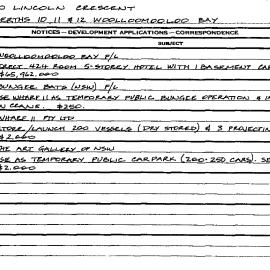 0 LINCOLN CRESCENT
BERTHS 10, 11 & 12 WOOLLOOMOOLOO BAY
NOTICES – DEVELOPMENT APPLICATIONS – CORRESPONDENCE
SUBJECT
WOOLLOOMOOLOO BAY P/L
ERECT 424 ROOM 5-STOREY HOTEL WITH 1 BASEMENT CAR
$65,962,000
BUNGER BATS (NSW) P/L
USE WHARF 11 AS TEMPORARY PUBLIC BUNGEE OPERATION &
ON CRANE. $250.
WHARF 11 PTY LTD
STORE/LAUNCH 200 VESSELS (DRY STORED) & 3 PROJECTING
$2,000
THE ART GALLERY OF NSW
USE AS TEMPORARY PUBLIC CARPARK (200-250 CARS). SE
$2,000